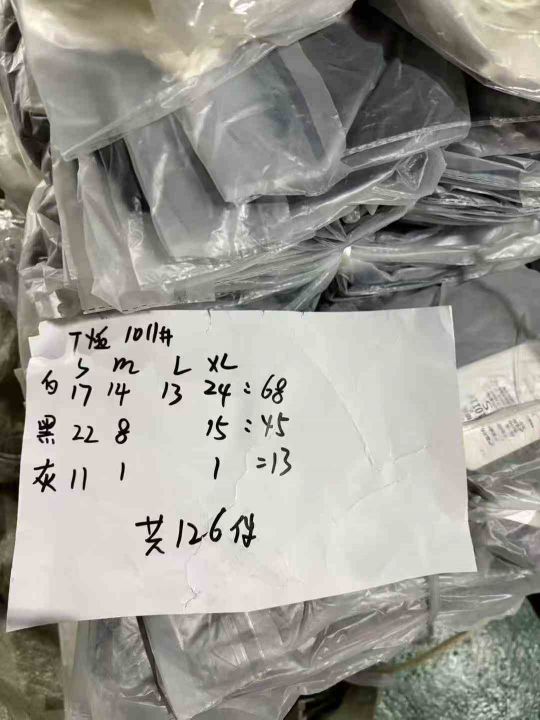 T恤 1011#
S m L XL
白 17 14 13 24 : 68
黑 22 8 15 : 45
灰 11 1 1 = 13
共126件